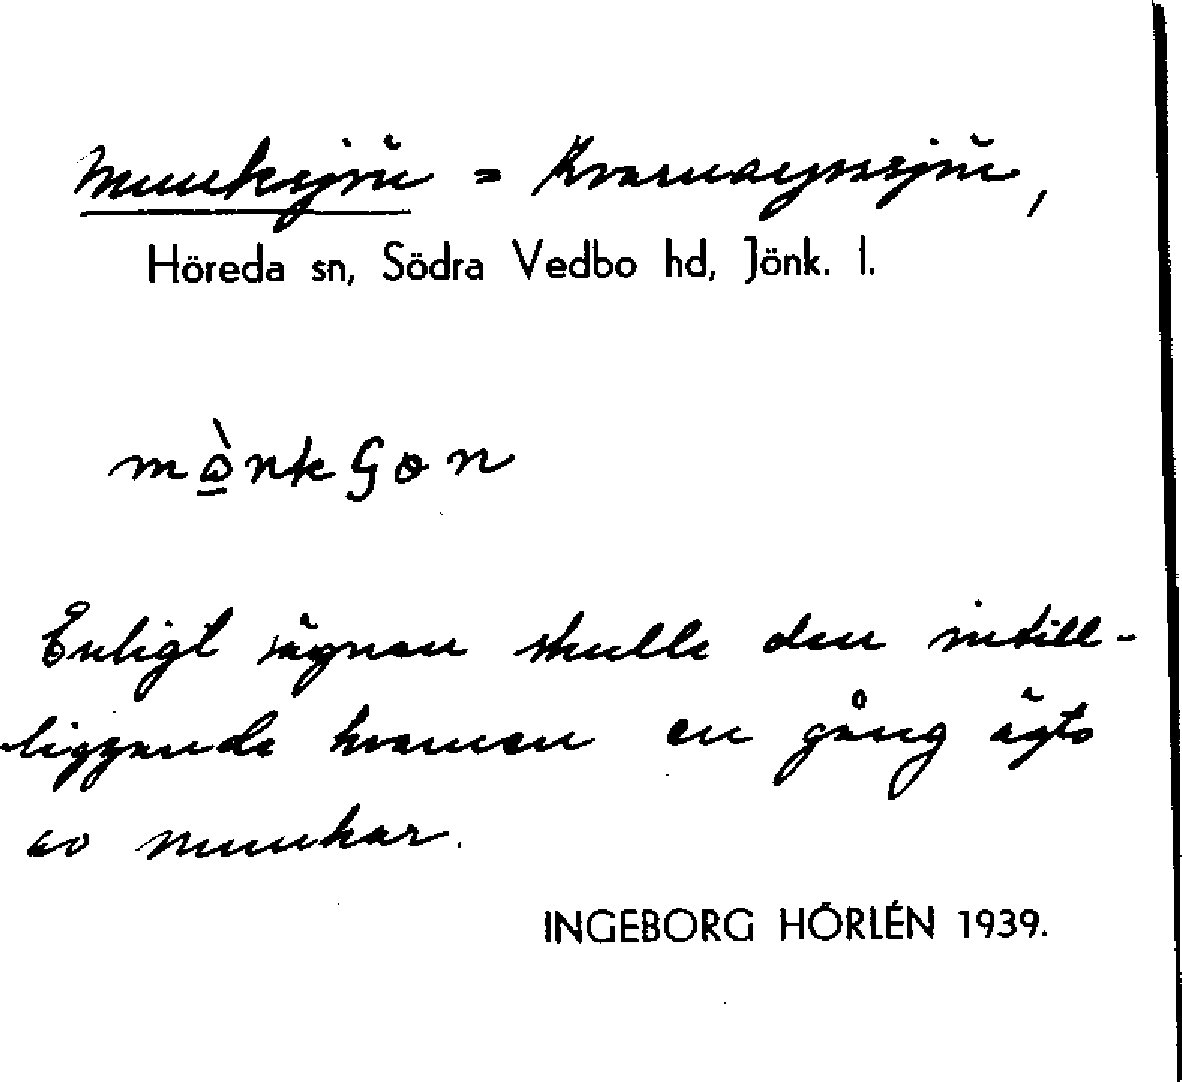 Munksjön = Kvarnarpssjön,
Höreda sn, Södra Vedbo hd, Jönk. l.
Enligt sägnen skulle den intill-
liggande kvarnen en gång ägts
av munkar.
INGEBORG HÖRLÉN 1939.